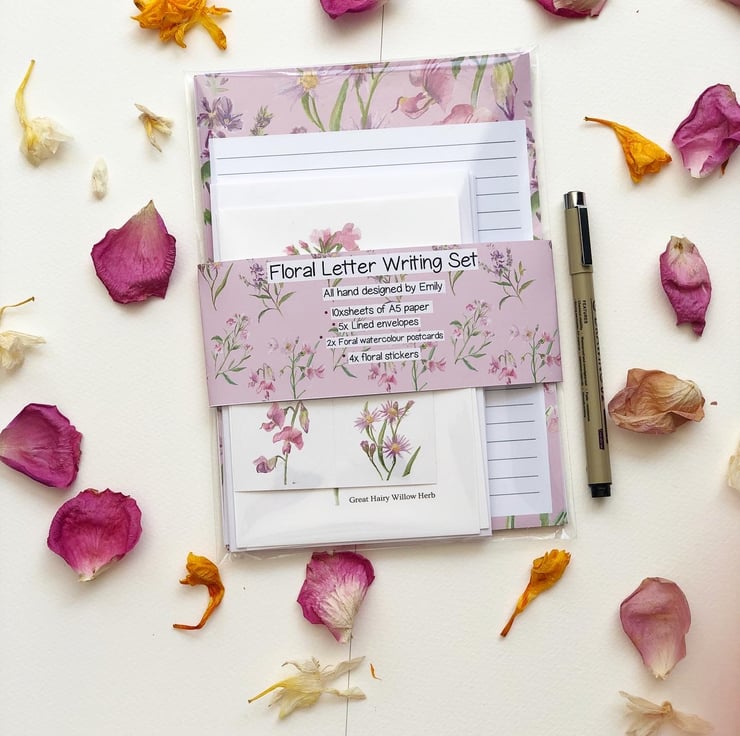 Floral Letter Writing Set
All hand designed by Emily
• 10xsheets of A5 paper
• 5x Lined envelopes
• 2x Foral watercolour postcards
• 4x floral stickers
Great Hairy Willow Herb